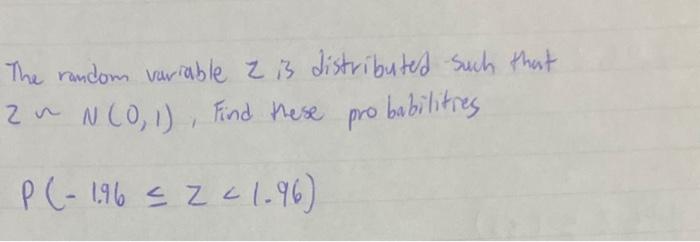 The random variable Z is distributed such that
Z ~ N(0,1), Find these probabilities
P(-1.96 ≤ Z < 1.96)